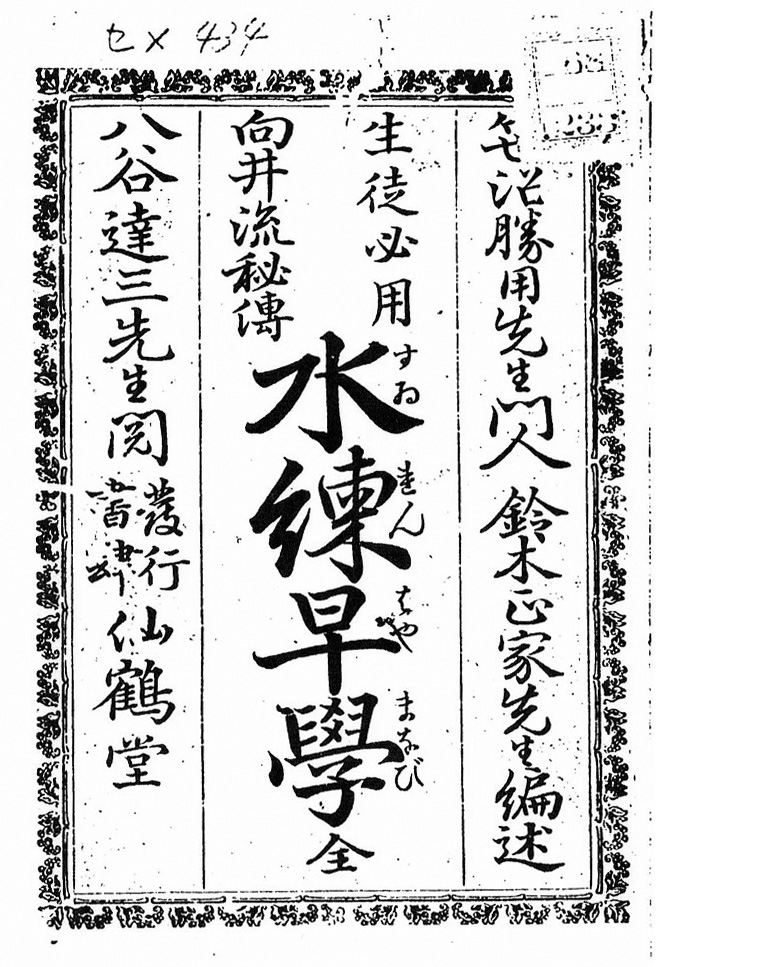 笹沼勝用先生門人 鈴木正家先生編述
生徒必用
向井流秘傳
水練早學 全
すゐれんはやまなび
八谷達三先生閲
發行
書肆
仙鶴堂
434